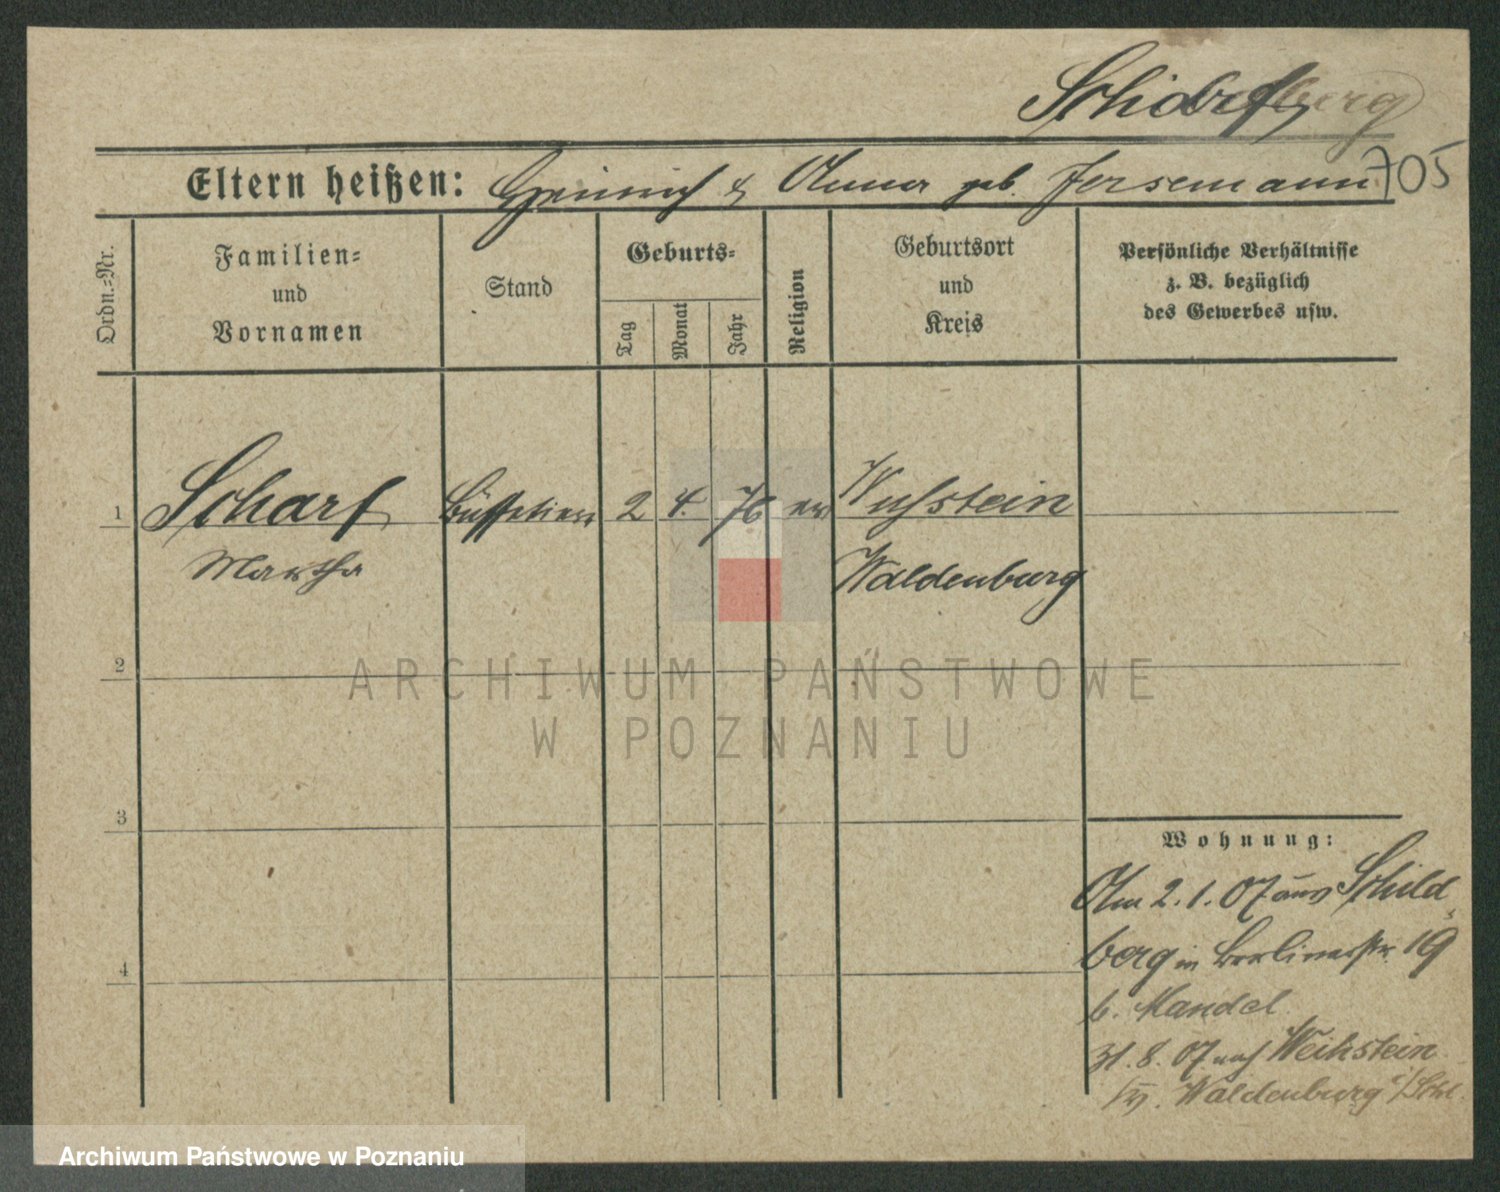 Eltern heißen: Heinrich & Anna geb. Jersemann
705
Ordn.-Nr.
Familien-
und
Vornamen
Stand
Geburts-
Tag
Monat
Jahr
Religion
Geburtsort
und
Kreis
Persönliche Verhältnisse
z. B. bezüglich
des Gewerbes usw.
1 Scharf Büffetiere 2 4. 76 ev Wuhstein
Martha Waldenburg
2
3
4
Wohnung:
Am 2.1.07 aus Schild
berg in Berlinerstr. 19
b. Mandel
31.8.07 nach Weihstein
Waldenburg i/Schl.
ARCHIWUM PAŃSTWOWE
W POZNANIU
Archiwum Państwowe w Poznaniu